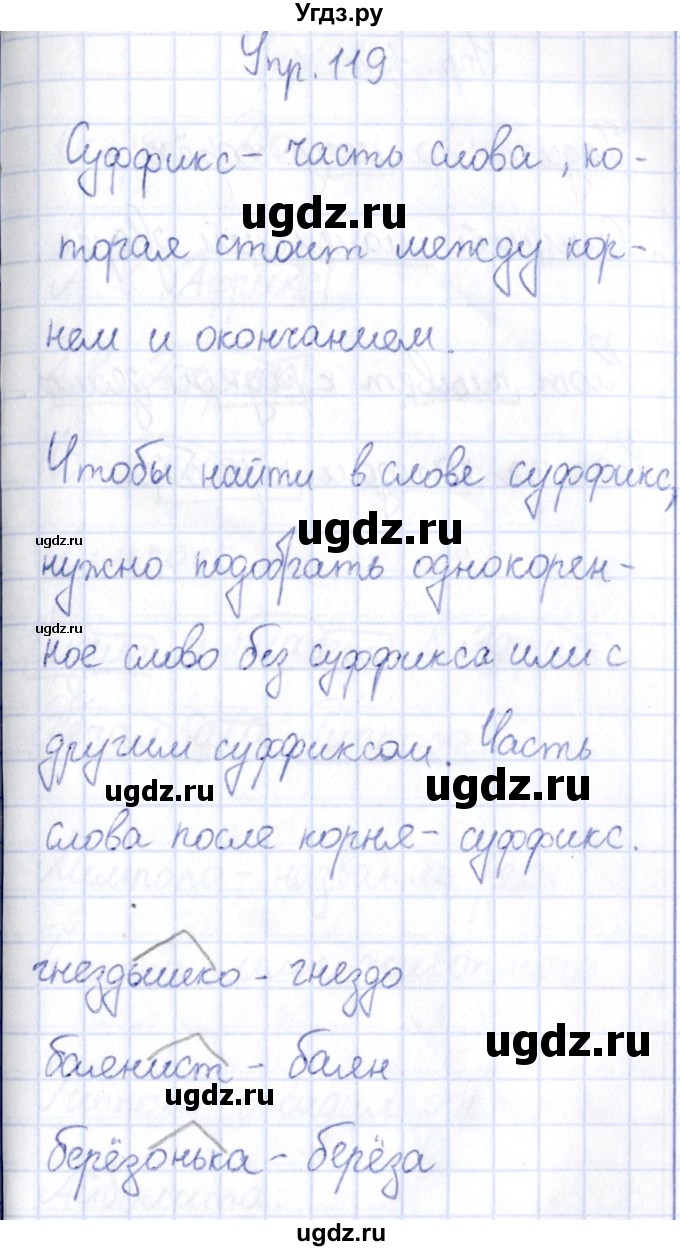 Угдз.ру
Упр. 119
Суффикс - часть слова, ко-
ugdz.ru
торая стоит между кор-
нем и окончанием.
Чтобы найти в слове суффикс,
ugdz.ru
ugdz.ru
нужно подобрать однокорен-
ugdz.ru
ное слово без суффикса или с
другим суффиксом. Часть
ugdz.ru
ugdz.ru
слова после корня - суффикс.
гнездышко - гнездо
ugdz.ru
баянист - баян
ugdz.ru
берёзонька - берёза
ugdz.ru